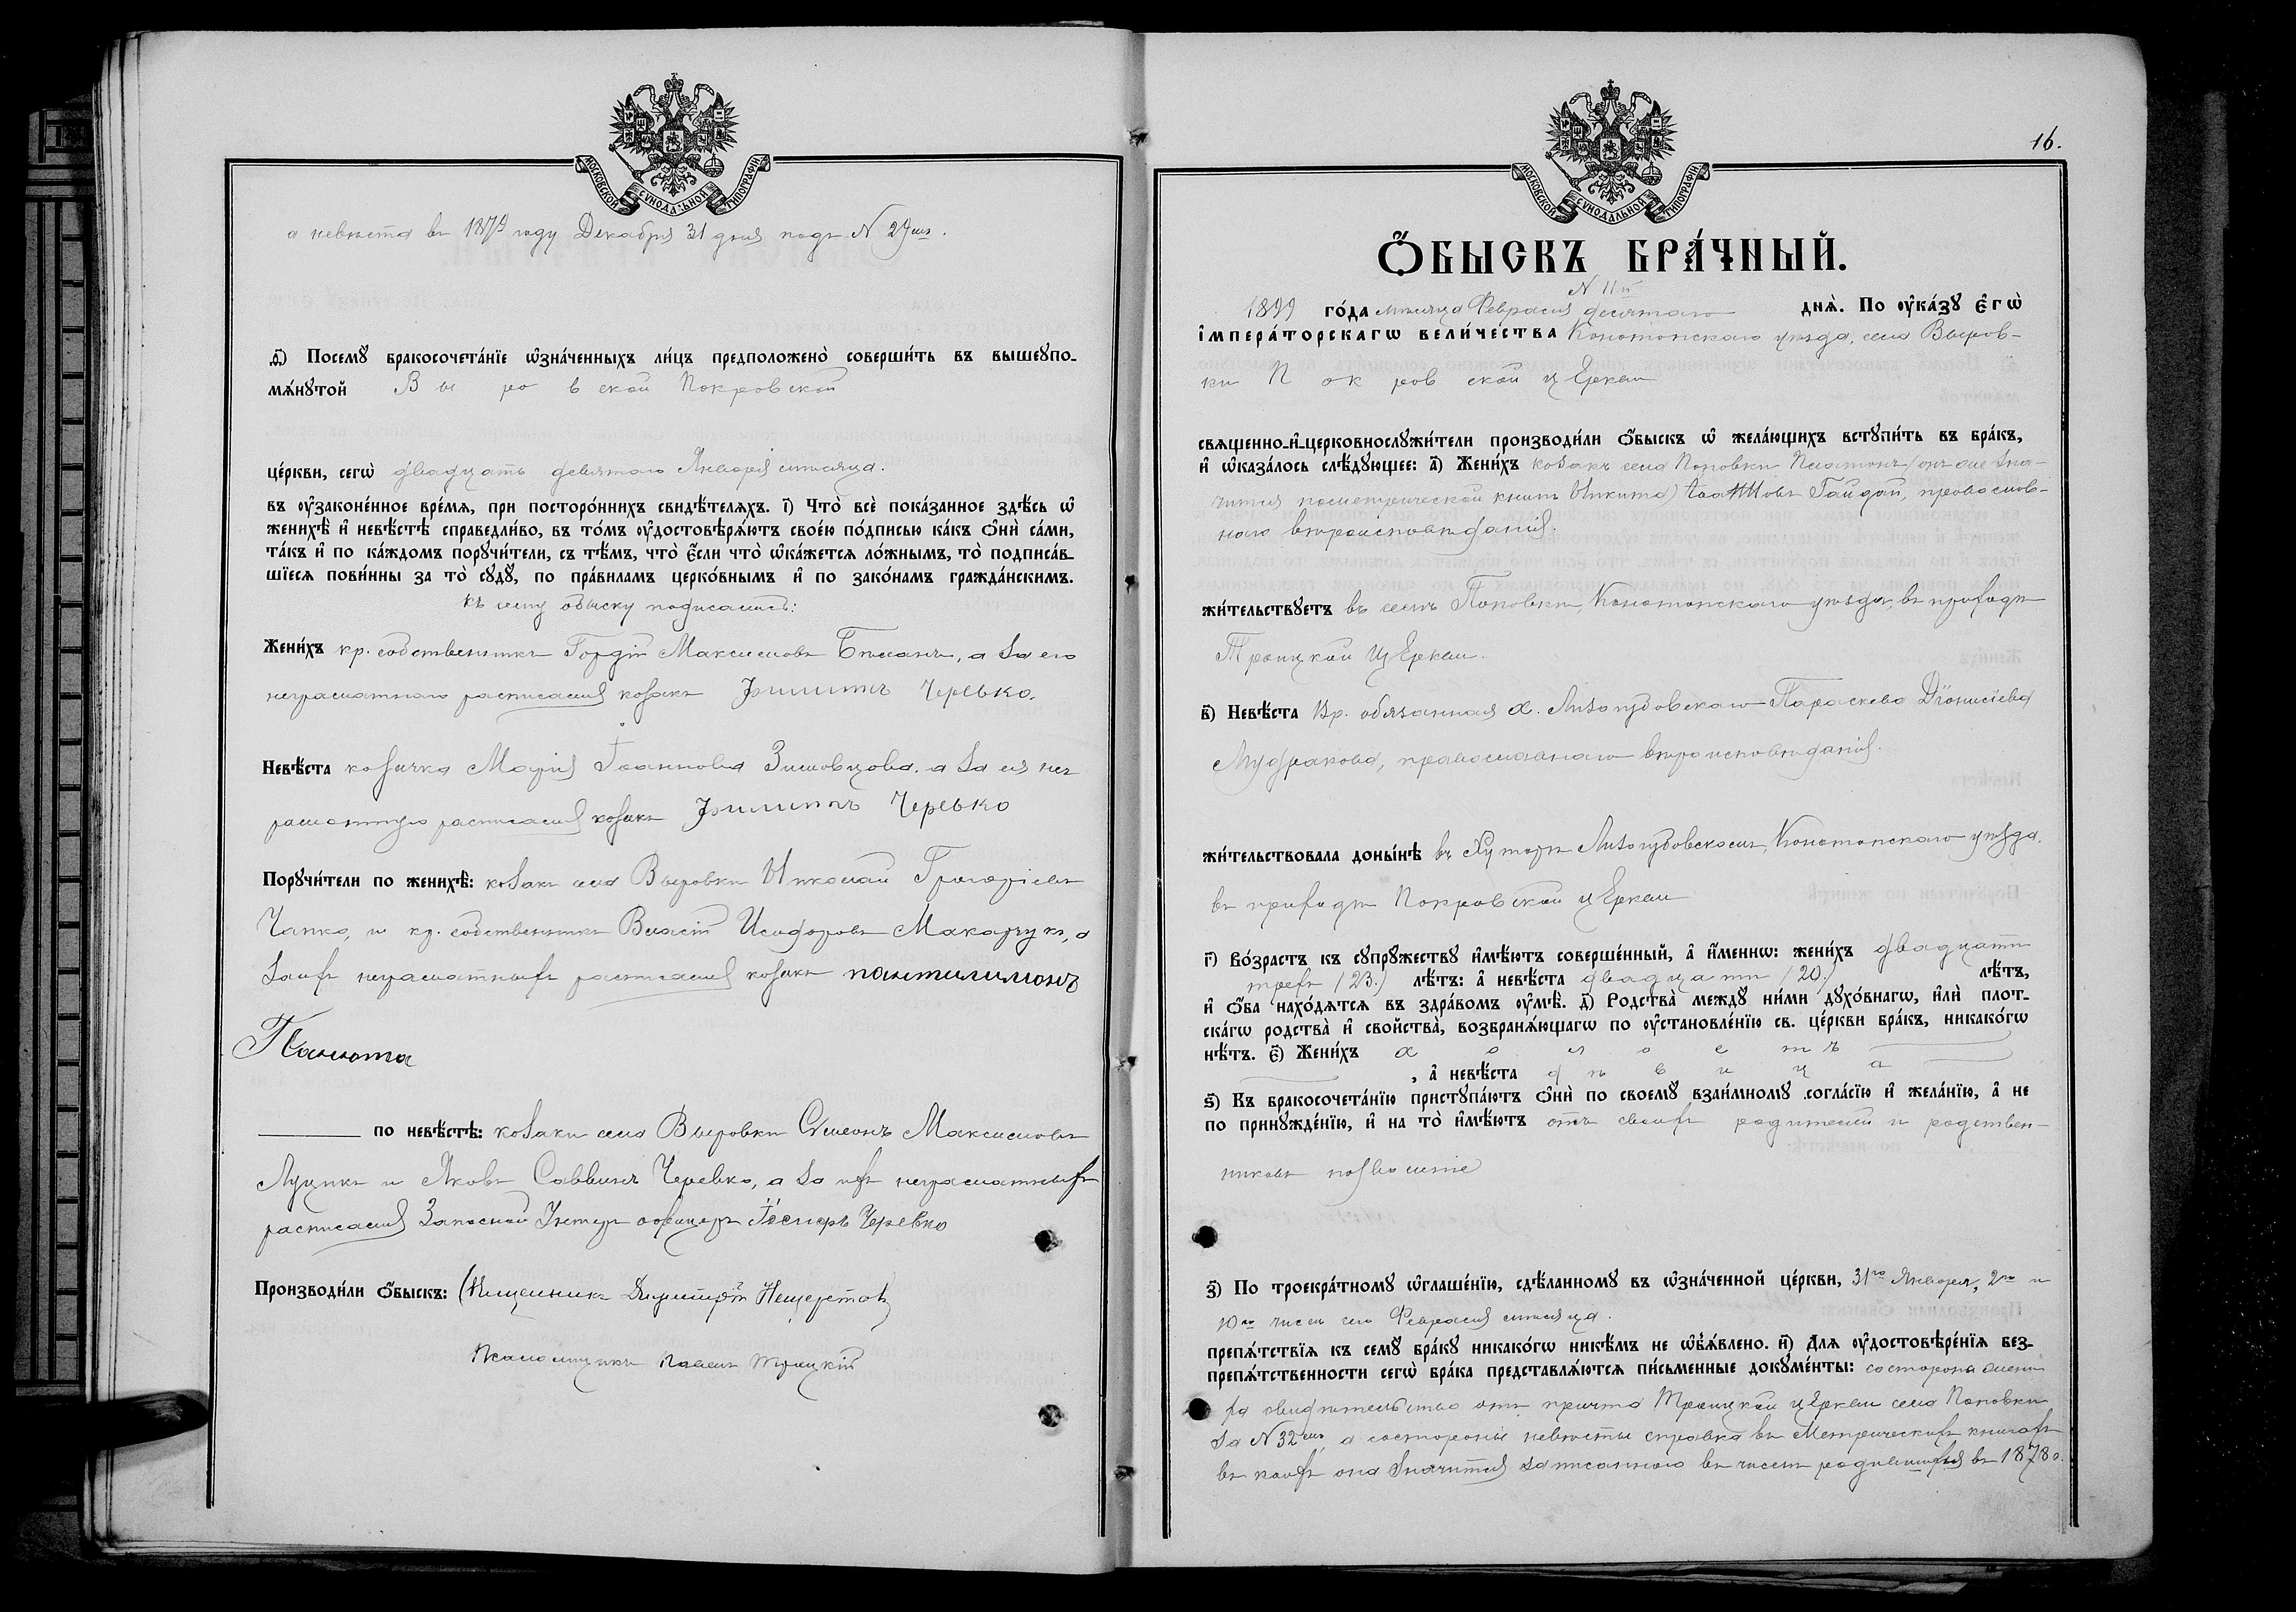 МОСКОВСКОЙ СѴНОДАЛЬНОЙ ТИПОГРАФІИ
а невѣста въ 1879 году Декабря 31 дня подъ № 29мъ.
Ѳ҃) Посемꙋ бракосочета́нїе ѡ҆зна́ченныхъ ли́цъ предположено̀ соверши́ть въ вышеꙋпо-
мѧ́нꙋтой Выровской Покровской
це́ркви, сегѡ̀ двадцать девятаго Января мѣсяца.
въ ᲂу҆зако́ненное вре́мѧ, при посторо́ннихъ свидѣ́телѧхъ. і҃) Что̀ всѐ пока́занное здѣ́сь ѡ҆
женихѣ̀ и҆ невѣ́стѣ справедли́во, въ то́мъ ᲂу҆достовѣрѧ́ютъ свое́ю по́дписью ка́къ ѻ҆нѝ са́ми,
та́къ и҆ по ка́ждомъ порꙋчи́тели, съ тѣ́мъ, что̀ є҆́сли что̀ ѡ҆ка́жетсѧ ло́жнымъ, то̀ подписа́в-
шїесѧ пови́нны за то̀ сꙋдꙋ̀, по пра́виламъ церко́внымъ и҆ по зако́намъ гражда́нскимъ.
Къ сему обыску подписались:
Жени́хъ кр. собственникъ Гордій Максимовъ Бѣланъ, а за его
неграматнаго расписался козакъ Филиппъ Черевко.
Невѣ́ста козачка Марія Іоаннова Зимовцова, а за ея нег
раматную расписался козакъ Филиппъ Черевко
Порꙋчи́тели по женихѣ̀: козакъ села Выровки Николай Григоріевъ
Чапко, и кр. собственникъ Власій Исидоровъ Макарчукъ, а
за ихъ неграматныхъ расписался козакъ пантилимонъ
Панюта
по невѣ́стѣ: козаки села Выровки Симеонъ Максимовъ
Луцикъ и Яковъ Саввинъ Черевко, а за ихъ неграматныхъ
расписался Запасной Унтеръ офицеръ Іосифъ Черевко
Производи́ли ѻ҆́быскъ: Священникъ Димитрій Нещеретовъ
Псаломщикъ Павелъ Троицкій
16.
МОСКОВСКОЙ СѴНОДАЛЬНОЙ ТИПОГРАФІИ
Ѻ҆́БЫСКЪ БРА́ЧНЫЙ.
№ 11й
1899 го́да мѣсяца Февраля десятаго днѧ̀. По ᲂу҆ка́зꙋ є҆гѡ̀
і҆мпера́торскагѡ вели́чества Конотопскаго уѣзда, села Выров-
ки Покровской церкви
свѧщенно-и҆-церковнослꙋжи́тели производи́ли ѻ҆́быскъ ѡ҆ жела́ющихъ встꙋпи́ть въ бра́къ,
и҆ ѡ҆каза́лось слѣ́дꙋющее: а҃) Жени́хъ козакъ села Поповки Платонъ (онъ же зна-
чится по метрической книгѣ Никита) Іоанновъ Гайдай, православ-
наго вѣроисповѣданія.
жи́тельствꙋетъ въ селѣ Поповки, Конотопскаго уѣзда, въ приходѣ
Троицкой Церкви.
в҃) Невѣ́ста Кр. обязанная х. Лизогубовскаго Параскева Діонисіева
Мудракова, православнаго вѣроисповѣданія.
жи́тельствовала доны́нѣ въ Хуторѣ Лизогубовскомъ, Конотопскаго уѣзда,
въ приходѣ Покровской церкви
г҃) Во́зрастъ къ сꙋпрꙋ́жествꙋ и҆мѣ́ютъ соверше́нный, а҆ и҆́меннѡ: жени́хъ двадцати
трехъ (23.) лѣ́тъ: а҆ невѣ́ста двадцати (20.) лѣ́тъ,
и҆ ѻ҆́ба нахо́дѧтсѧ въ здра́вомъ ᲂу҆мѣ̀. д҃) Родства̀ междꙋ ни́ми дꙋхо́внагѡ, и҆лѝ плот-
ска́гѡ родства̀ и҆ свойства̀, возбранѧ́ющагѡ по ᲂу҆становле́нїю св. це́ркви бра́къ, никако́гѡ
нѣ́тъ. є҃) Жени́хъ холостъ
, а҆ невѣ́ста дѣвица
ѕ҃) Къ бракосочета́нїю пристꙋпа́ютъ ѻ҆нѝ по своемꙋ̀ взаи́мномꙋ согла́сїю и҆ жела́нїю, а҆ не
по принꙋжде́нїю, и҆ на то̀ и҆мѣ́ютъ отъ своихъ родителей и родствен-
никовъ позволеніе
з҃) По троекра́тномꙋ ѡ҆глаше́нїю, сдѣ́ланномꙋ въ ѡ҆зна́ченной це́ркви, 31го Января, 2го и
10го чиселъ Февраля мѣсяца.
препѧ́тствїѧ къ семꙋ̀ бра́кꙋ никако́гѡ никѣ́мъ не ѡ҆б̾ѧ́влено. и҃) Для ᲂу҆достовѣре́нїѧ без-
препѧ́тственности сегѡ̀ бра́ка представлѧ́ютсѧ пи́сьменные докꙋме́нты: со стороны жени
ха свидѣтельство отъ причта Троицкой церкви села Поповки
за № 32мъ, а со стороны невѣсты справка въ Метрическихъ книгахъ
въ коихъ она значится записанною въ числѣ родившихся въ 1878